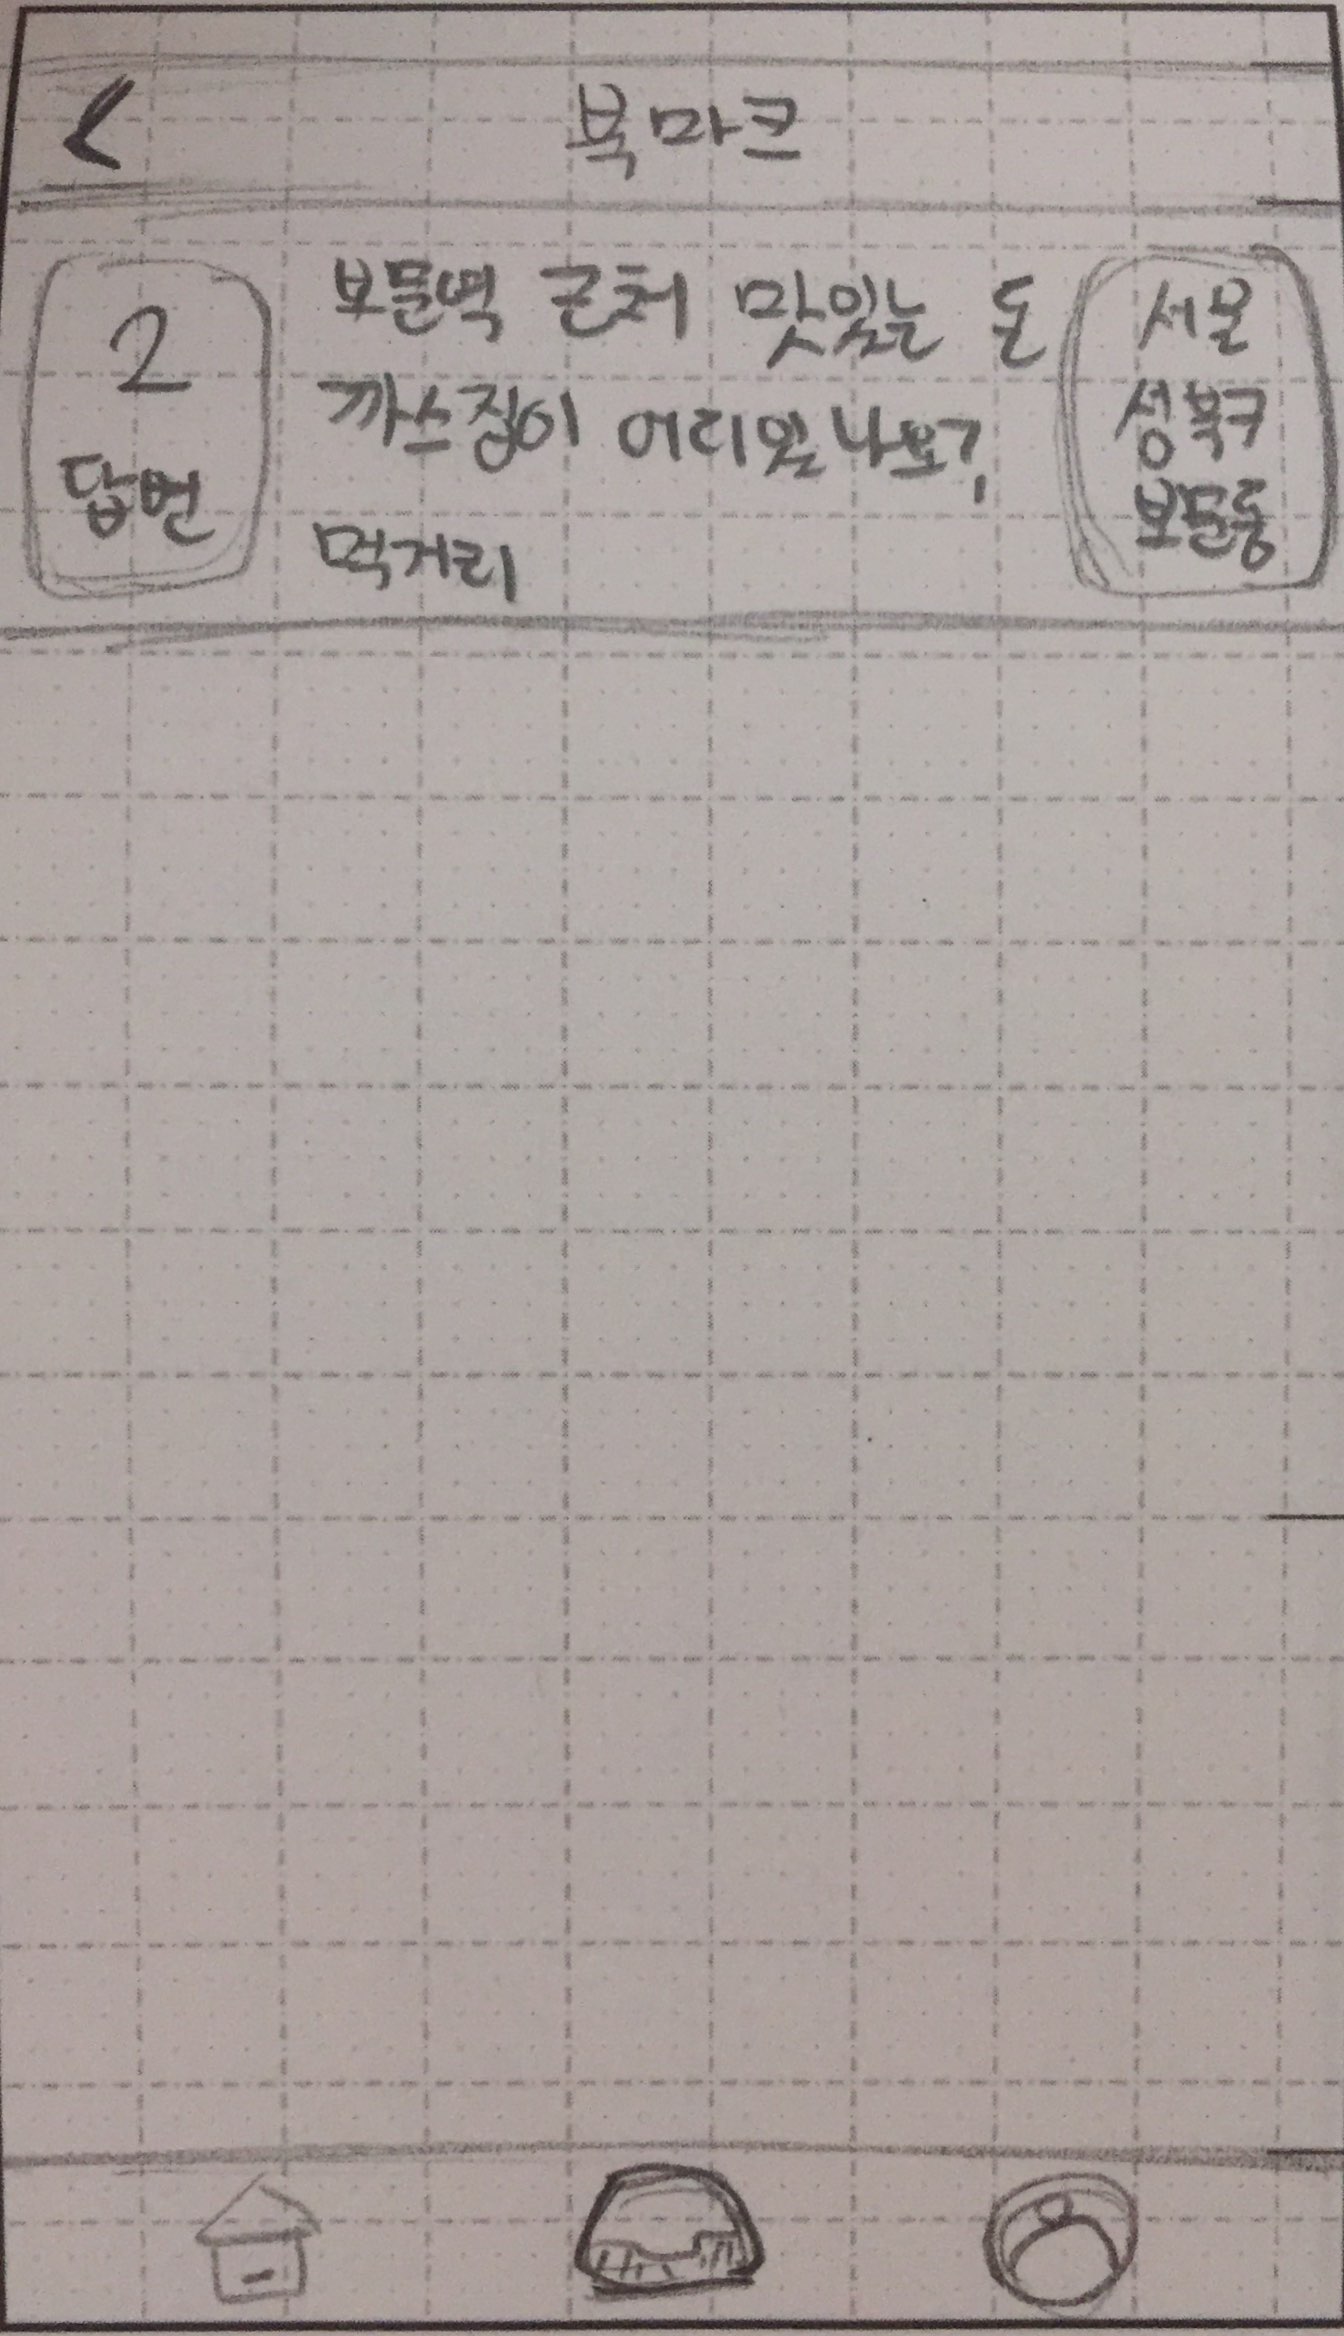 북마크
2
답변
보문역 근처 맛있는 돈
까스집이 어디있나요?
먹거리
서울
성북구
보문동